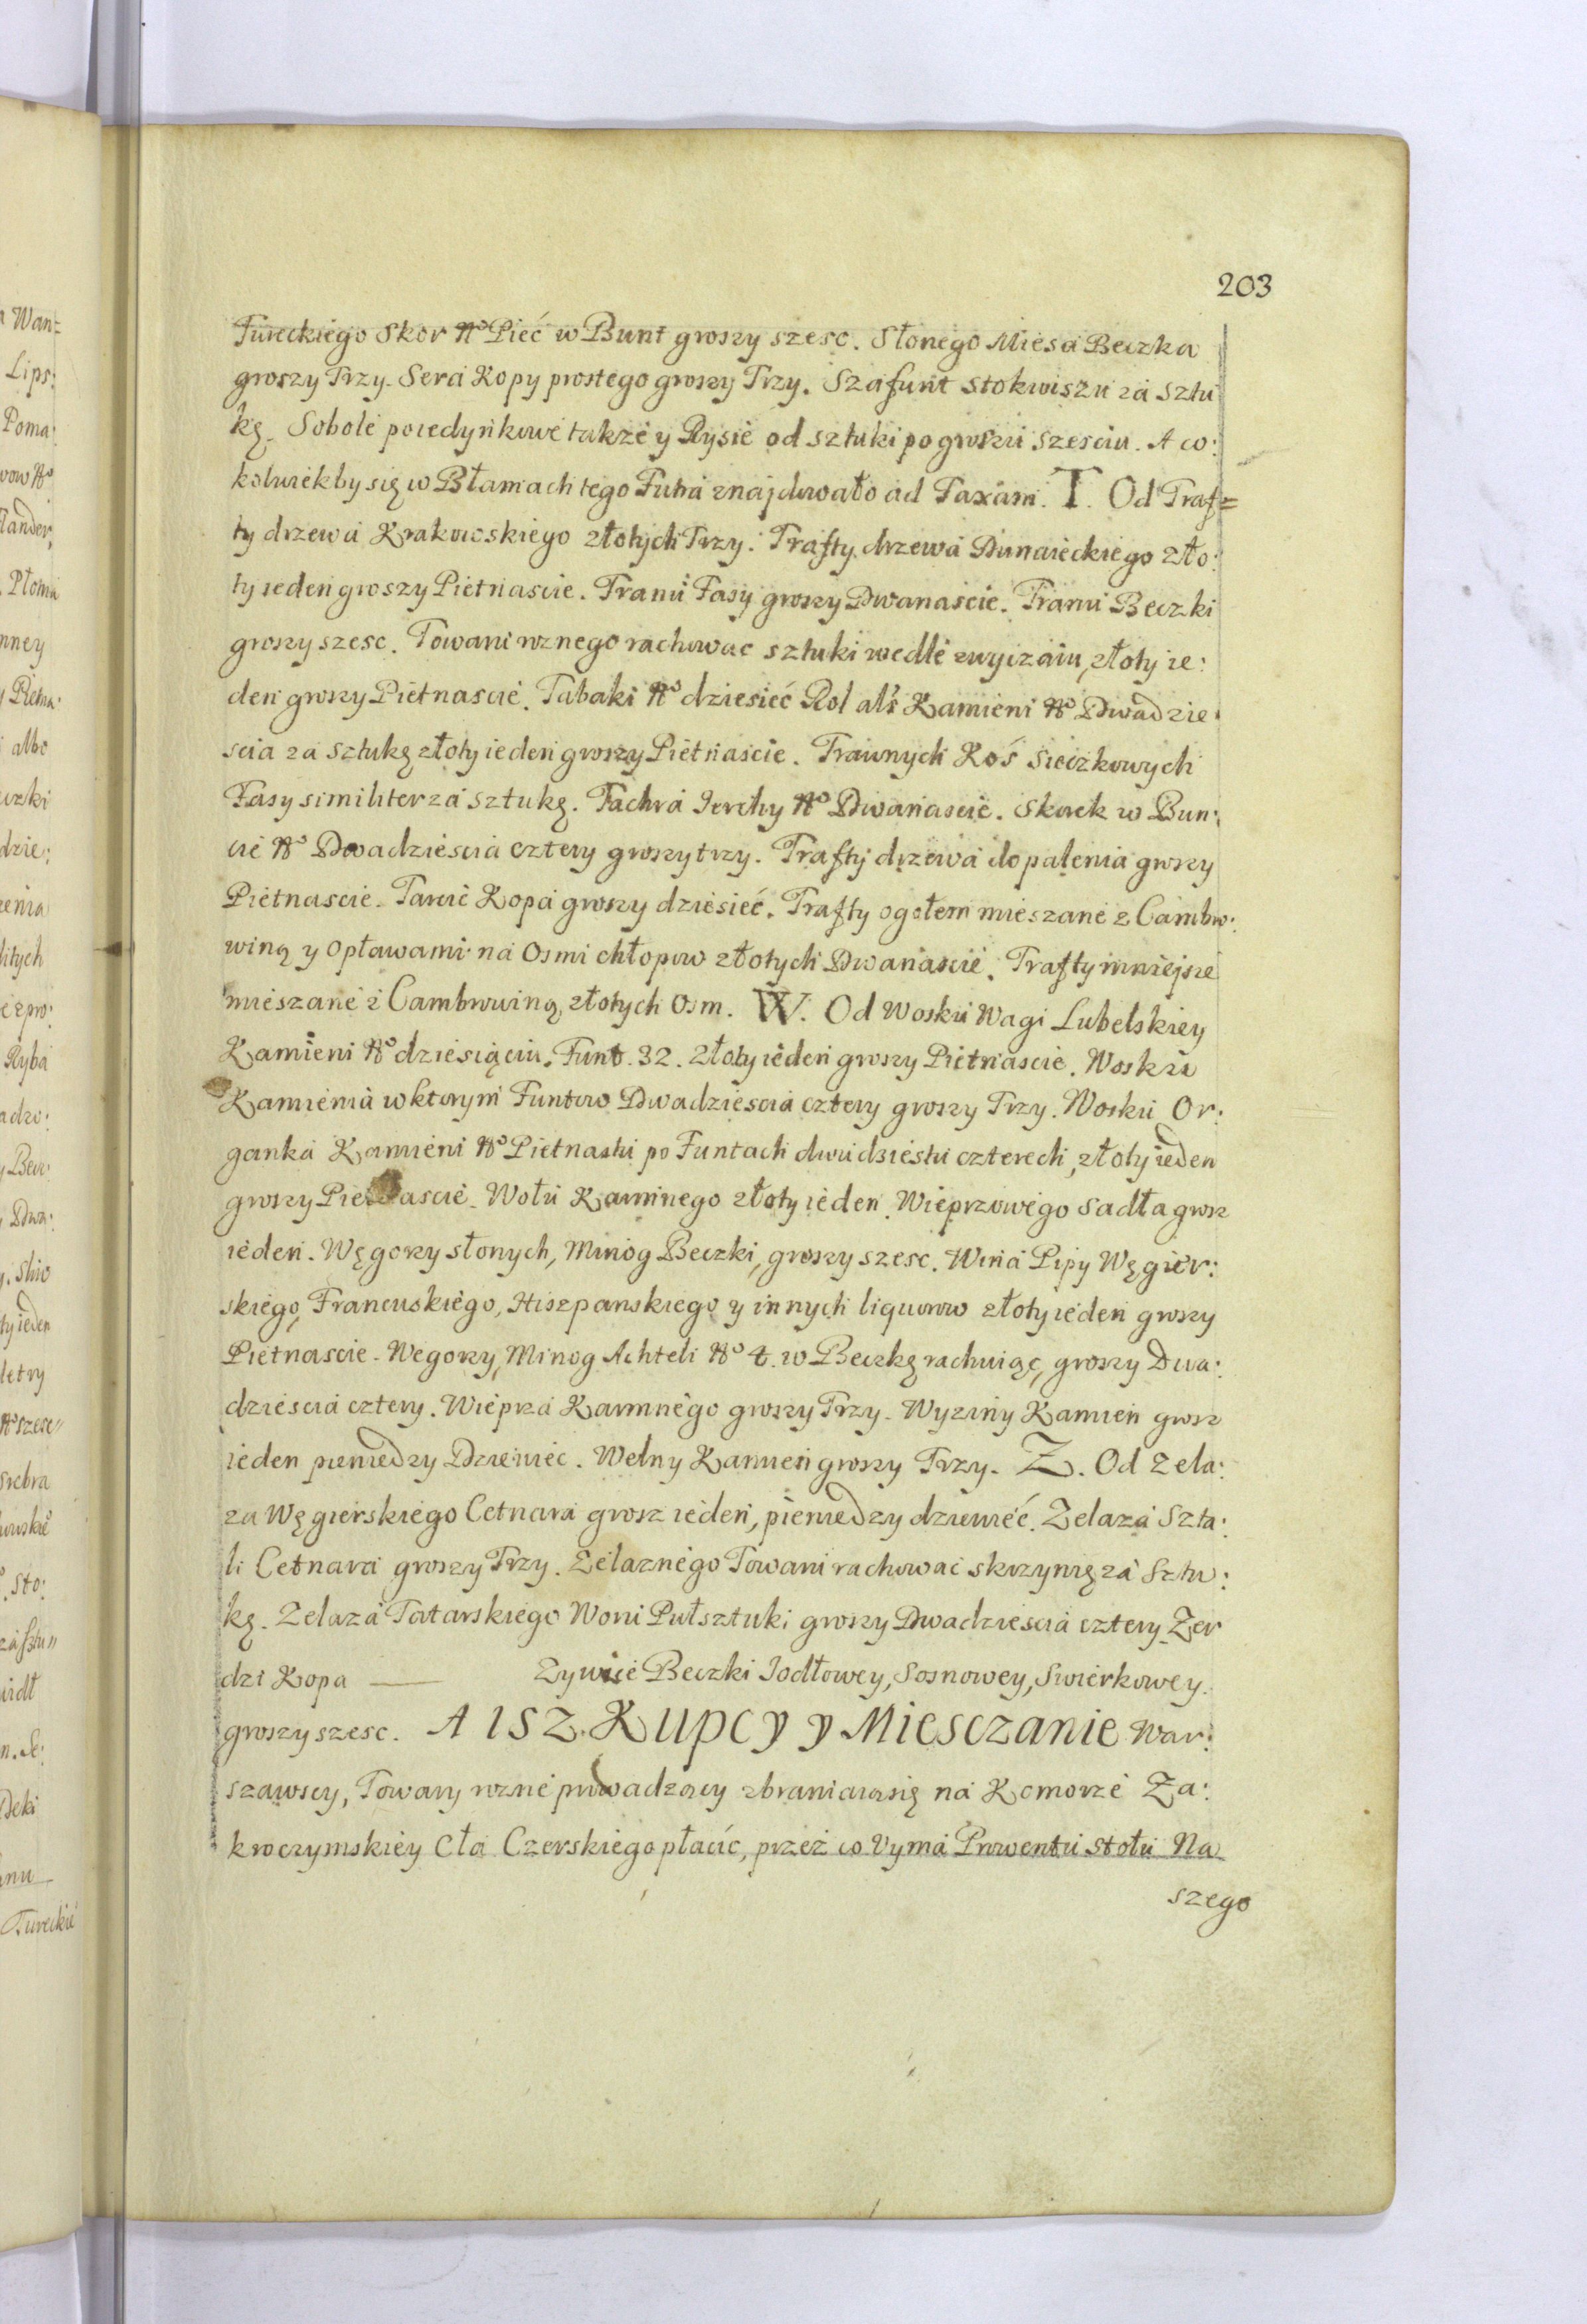 203
Tureckiego Skor No Pieć w Bunt groszy szesc. Słonego Miesa Beczka
groszy Trzy. Sera Kopy prostego groszy Trzy. Szafunt stokwiszu za sztu
kę. Sobole poiedynkowe takze y Rysie od sztuki po groszu szesciu. A co:
kolwiekby się w Błamach tego Futra znajdowało ad Taxam. T. Od Traf=
ty drzewa Krakowskiego złotych Trzy. Trafty drzewa Dunaieckiego zło:
ty ieden groszy Pietnascie. Tranu Fasy groszy Dwanascie. Tranu Beczki
groszy szesc. Towaru roznego rachowac sztuki wedle zwyczaiu, złoty ie:
den groszy Pietnascie. Tabaki No dziesieć Rol als Kamieni No Dwadzie:
scia za sztukę złoty ieden groszy Pietnascie. Trawnych Kos sieczkowych
Fasy similiter za sztukę. Tachra Ierchy No Dwanascie. Skorek w Bun:
cie No Dwadziescia cztery groszy trzy. Trafty drzewa do palenia groszy
Pietnascie. Tarcic Kopa groszy dziesieć. Trafty ogołem mieszane z Cambro:
winą y opławami na Osmi chłopow złotych Dwanascie. Trafty mniejsze
mieszane z Cambrowiną, złotych Osm. W. Od Wosku Wagi Lubelskiey
Kamieni No dziesiąciu. Funt. 32. Złoty ieden groszy Pietnascie. Wosku
Kamienia w ktorym Funtow Dwadziescia cztery groszy Trzy. Wosku Or:
ganka Kamieni No Pietnastu po Funtach dwudziestu czterech, złoty ieden
groszy Pietnascie. Wołu Karmnego złoty ieden. Wieprzowego Sadła grosz
ieden. Węgorzy słonych, Minog Beczki, groszy szesc. Wina Pipy Węgier:
skiego, Francuskiego, Hiszpanskiego y innych liquorow złoty ieden groszy
Pietnascie. Wegorzy, Minog Achteli No 4. w Beczkę rachuiąc, groszy Dwa:
dziescia cztery. Wieprza Karmnego groszy Trzy. Wyziny Kamien grosz
ieden pieniedzy Dziewiec. Welny Kamien groszy Trzy. Z. Od Zela:
za Węgierskiego Cetnara grosz ieden, pieniedzy dziewieć. Zelaza Szta:
li Cetnara groszy Trzy. Zelaznego Towaru rachowac skrzynię za Sztu:
kę. Zelaza Tatarskiego Woru Pułsztuki groszy Dwadziescia cztery. Zer
dzi Kopa — Zywice Beczki Jodłowey, Sosnowey, Swierkowey.
groszy szesc. A ISZ. Kupcy y Miesczanie War:
szawscy, Towary rozne prowadzący zbraniaiasię na Komorze Za:
kroczymskiey Cła Czerskiego płacic, przez co Vyma Prowentu stołu Na
szego